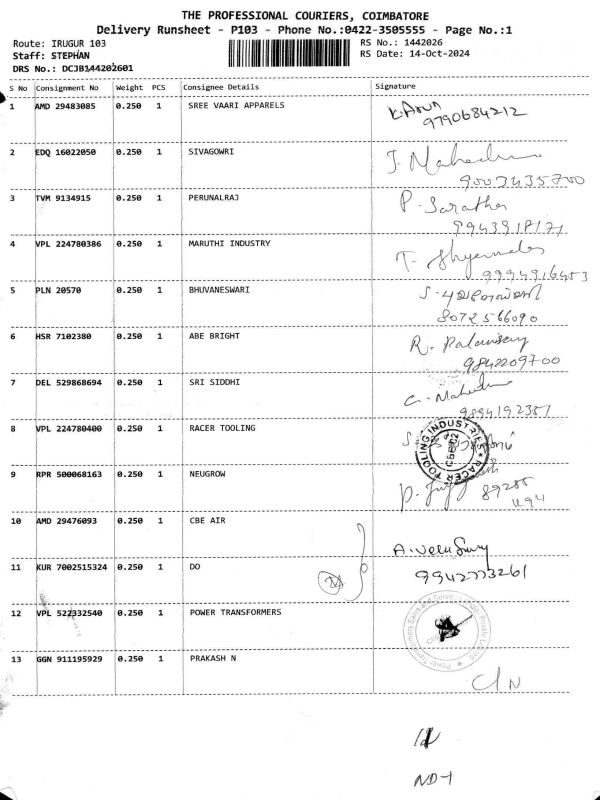 THE PROFESSIONAL COURIERS, COIMBATORE
Delivery Runsheet - P103 - Phone No.:0422-3505555 - Page No.:1
Route: IRUGUR 103
RS No.: 1442026
Staff: STEPHAN
RS Date: 14-Oct-2024
DRS No.: DCJB144202601
S No Consignment No Weight PCS Consignee Details Signature
1 AMD 29483085 0.250 1 SREE VAARI APPARELS K.Arun
9790684212
2 EDQ 16022050 0.250 1 SIVAGOWRI J.
9003435700
3 TVM 9134915 0.250 1 PERUNALRAJ P. Saratha
4 VPL 224780386 0.250 1 MARUTHI INDUSTRY T.
9994916453
5 PLN 20570 0.250 1 BHUVANESWARI S.
8072566090
6 HSR 7102380 0.250 1 ABE BRIGHT R.
9842209700
7 DEL 529868694 0.250 1 SRI SIDDHI
9894192357
8 VPL 224780400 0.250 1 RACER TOOLING
RACER TOOLING INDUSTRIES
9 RPR 500068163 0.250 1 NEUGROW P.
10 AMD 29476093 0.250 1 CBE AIR
A. Velu
11 KUR 7002515324 0.250 1 DO 9942773261
12 VPL 522332540 0.250 1 POWER TRANSFORMERS
13 GGN 911195929 0.250 1 PRAKASH N
C/N
12
ND-1